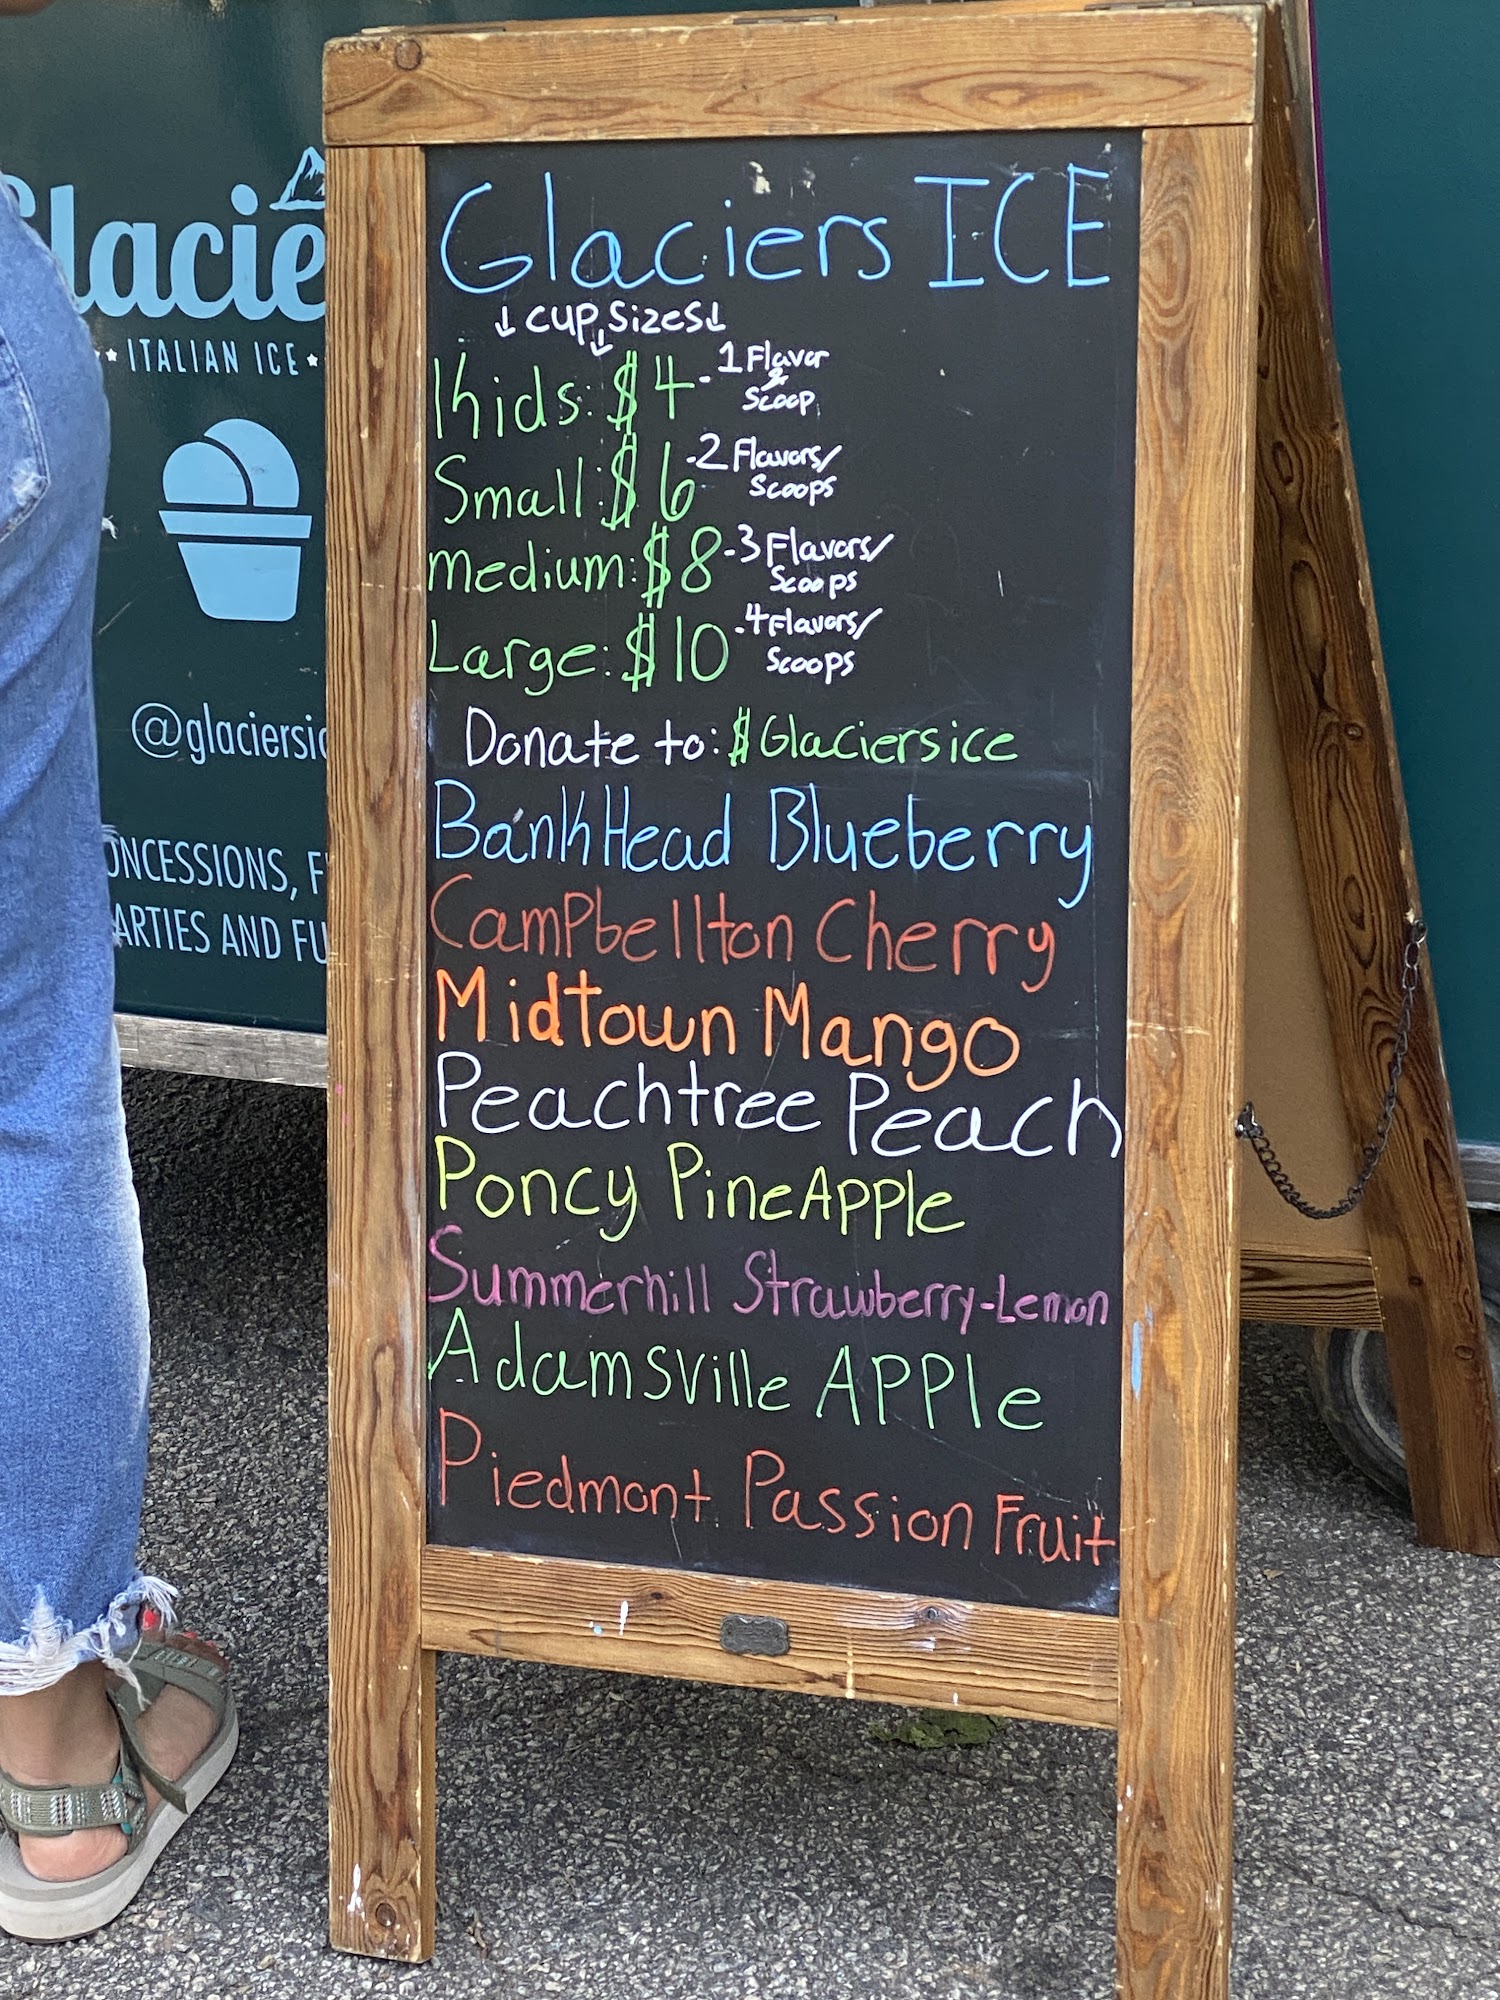 Glaciers ICE
↓ cup sizes ↓
↓
Kids: $4 - 1 Flavor
& Scoop
Small: $6 - 2 Flavors/
Scoops
medium: $8 - 3 Flavors/
Scoops
Large: $10 - 4 Flavors/
Scoops
Donate to: $Glaciersice
BankHead Blueberry
CamPbellton Cherry
Midtown Mango
Peachtree Peach
Poncy PineAPPle
Summerhill Strawberry-Lemon
Adamsville APPle
Piedmont Passion Fruit
lacie
ITALIAN ICE
@glaciersic
ONCESSIONS, F
ARTIES AND FU